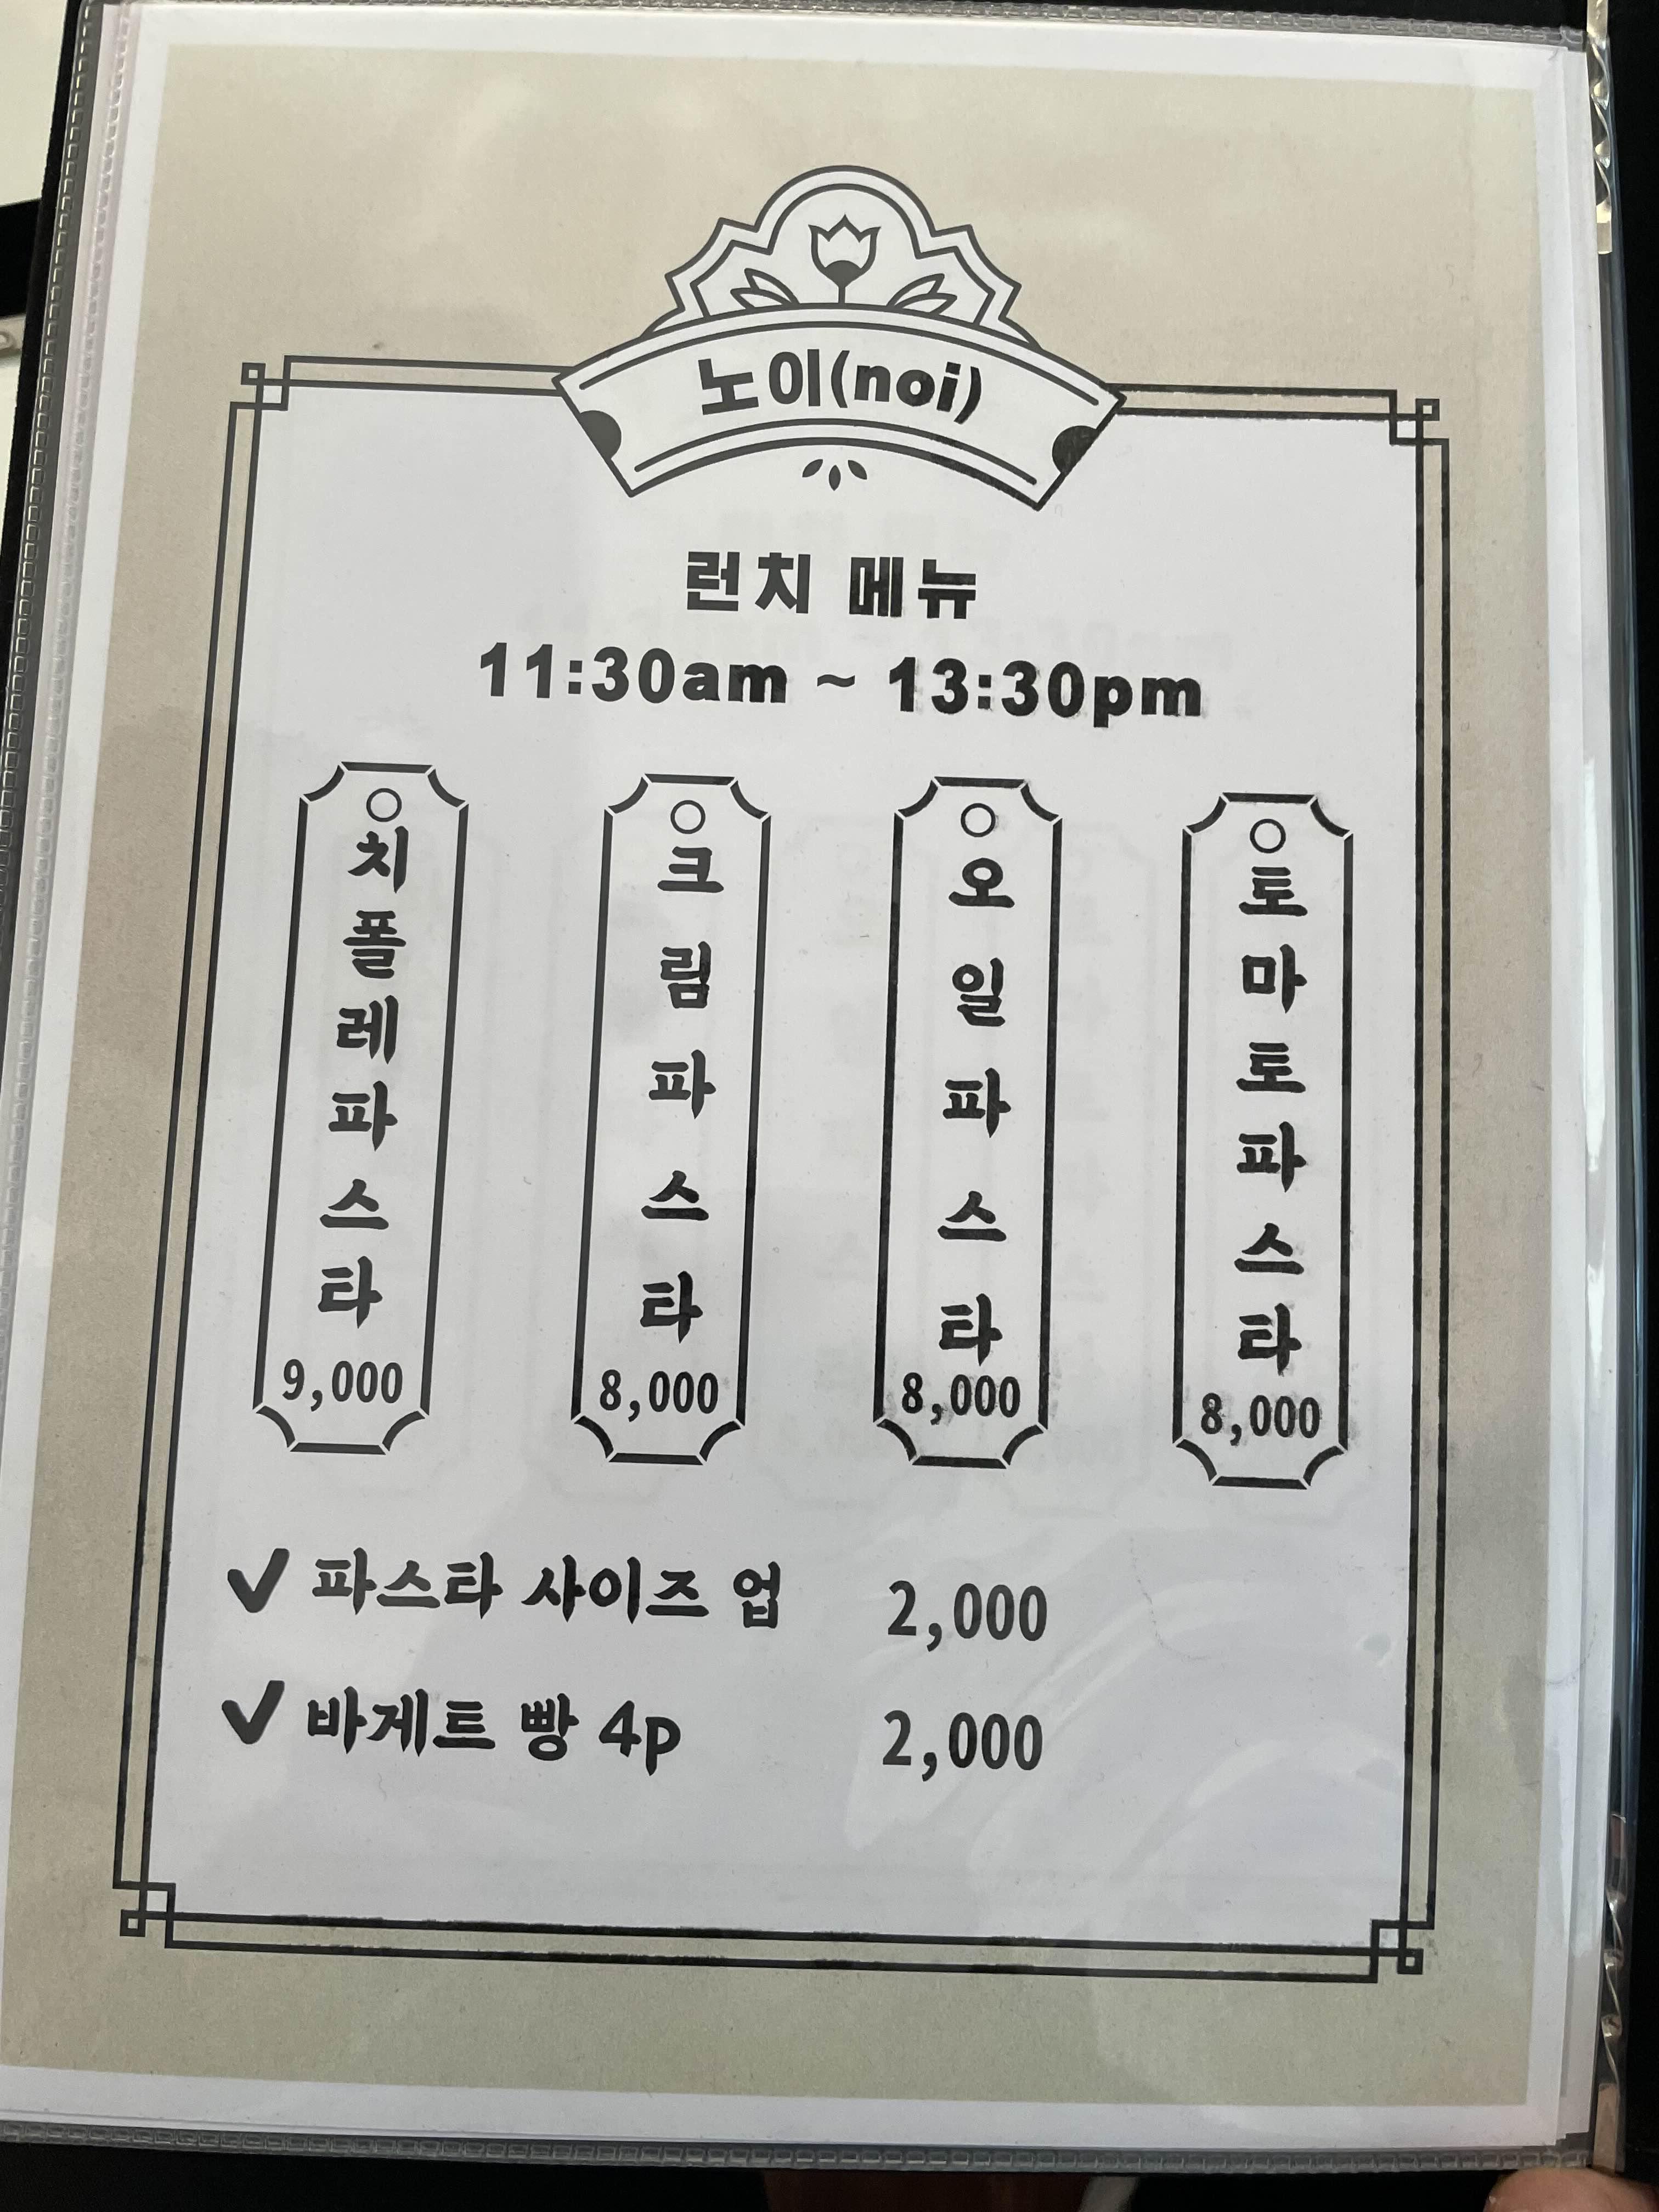 노이(noi)
런치 메뉴
11:30am ~ 13:30pm
치폴레파스타
9,000
크림파스타
8,000
오일파스타
8,000
토마토파스타
8,000
✓ 파스타 사이즈 업 2,000
✓ 바게트 빵 4p 2,000